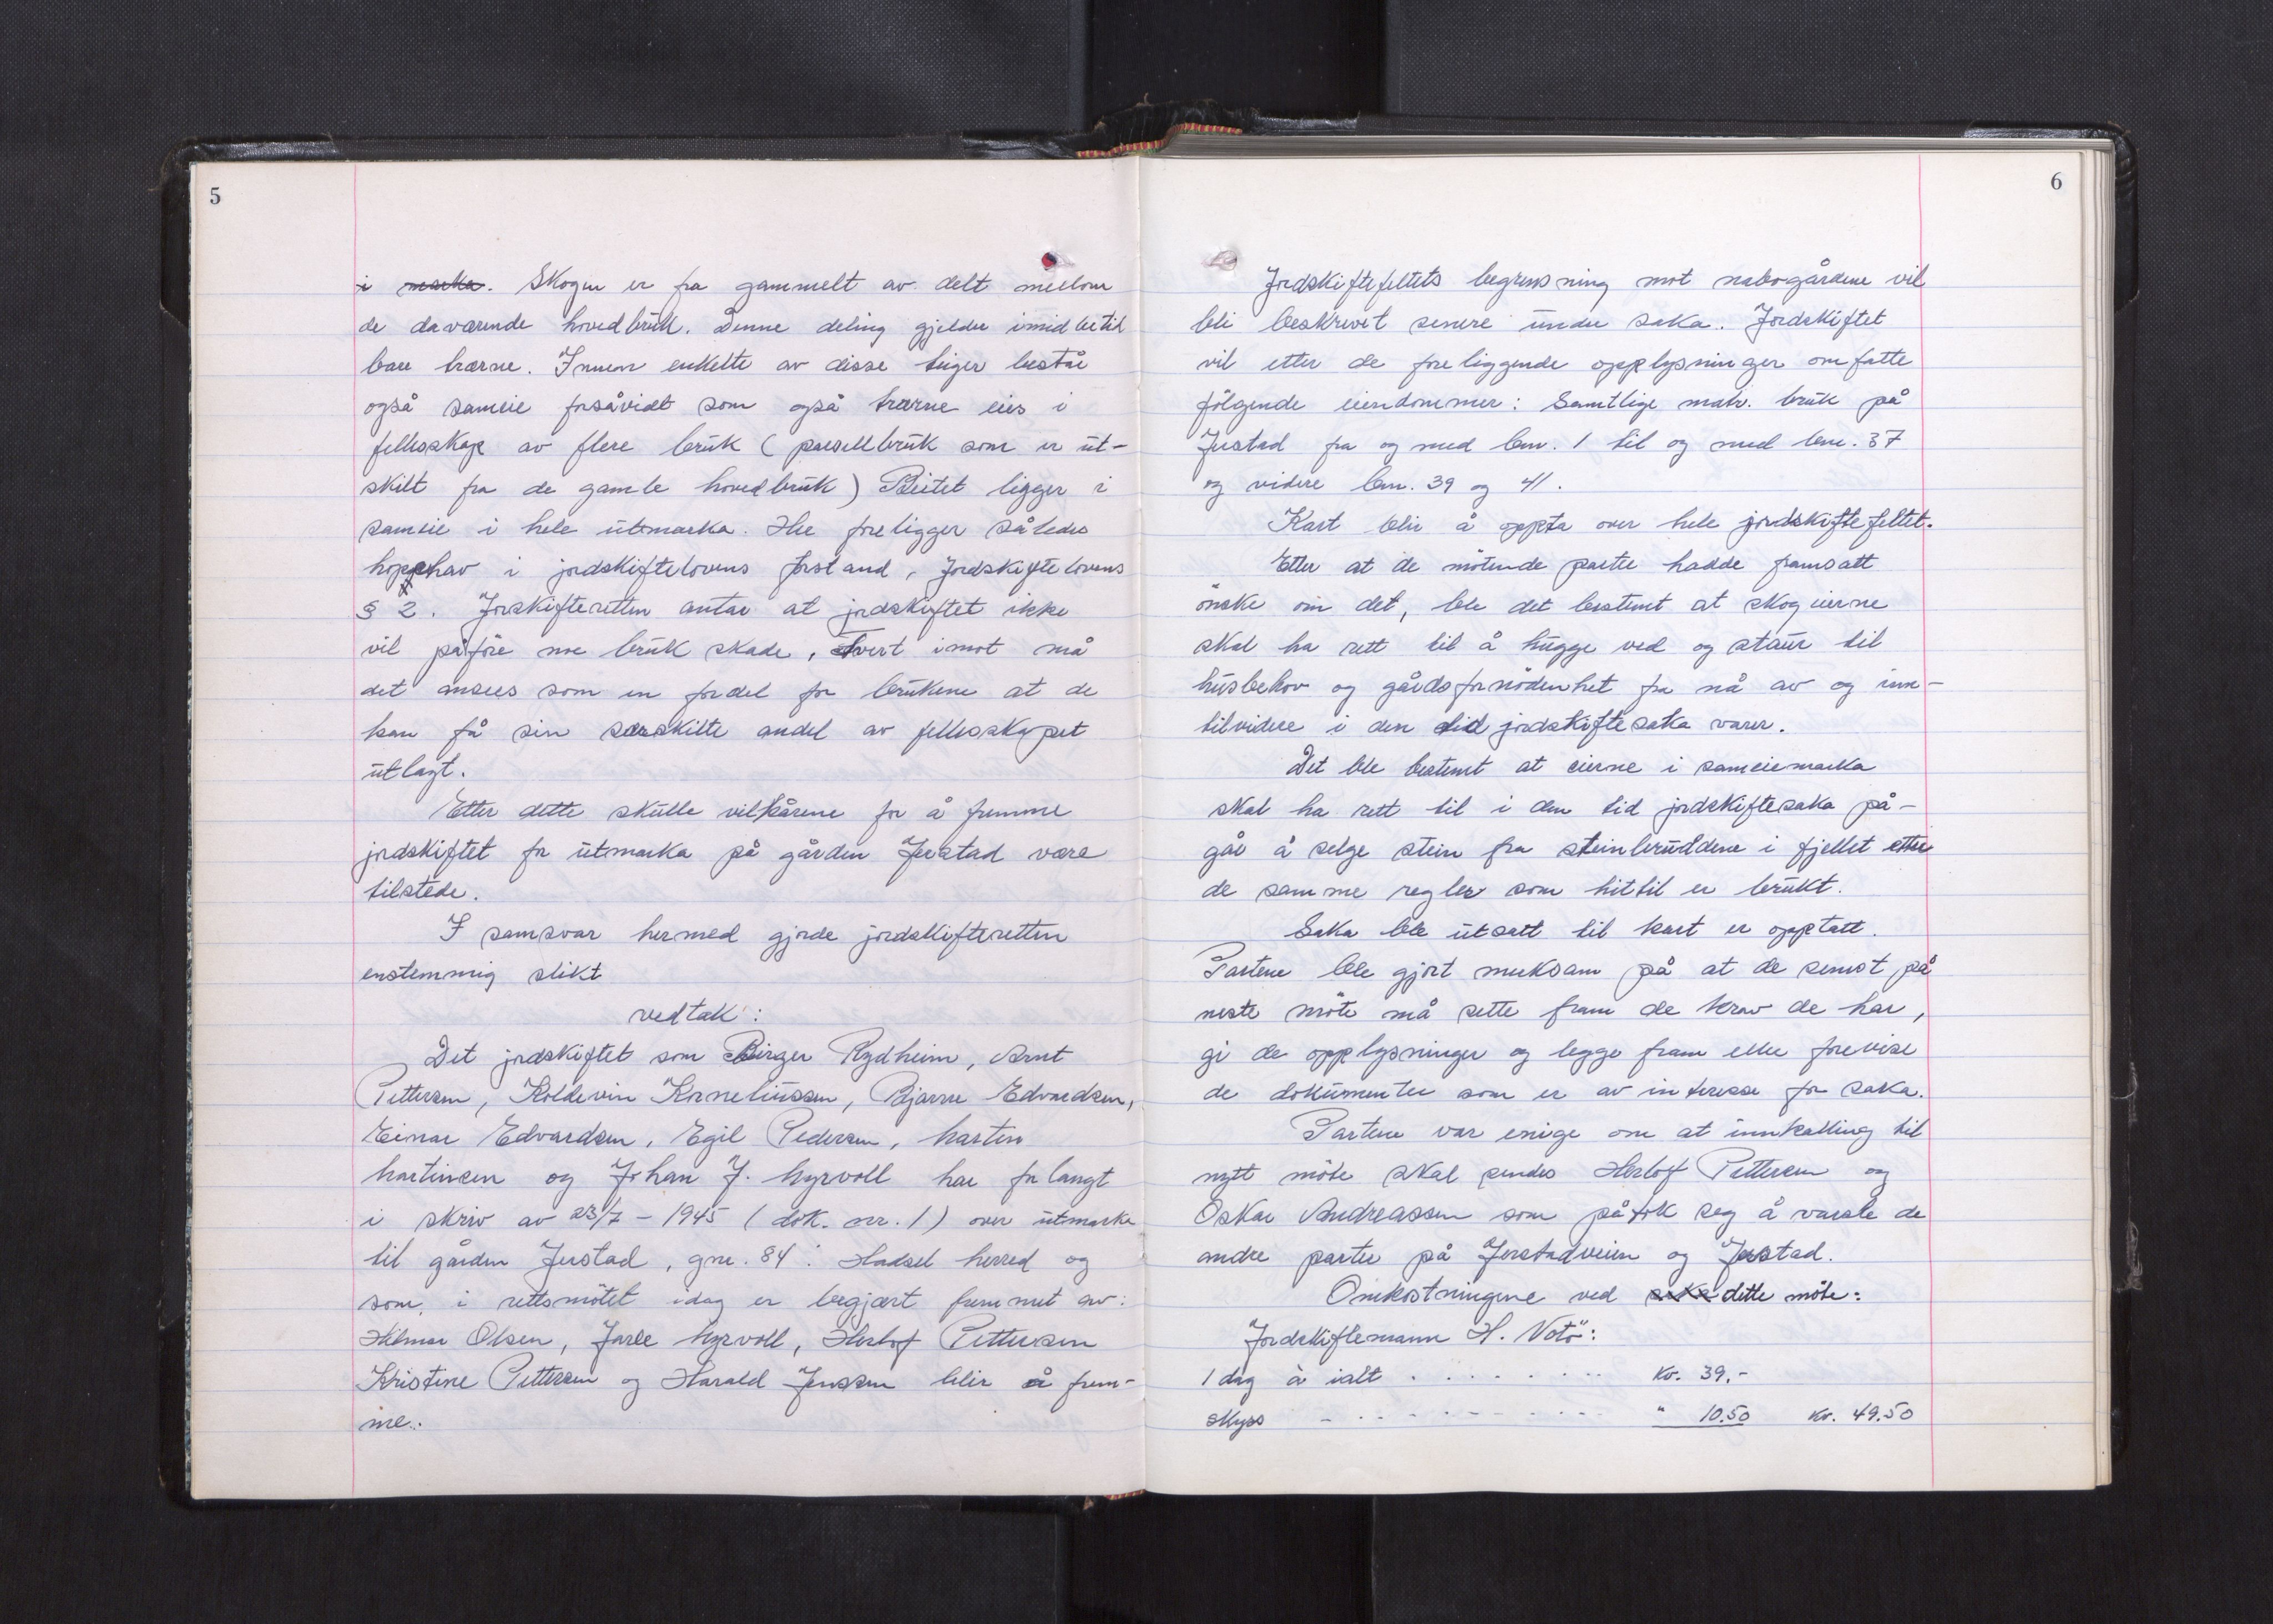 5
i marka. Skogen er fra gammelt av delt mellom
de daværende hovedbruk. Denne deling gjelder imidlertid
bare trærne. Innen enkelte av disse teiger består
også sameie forsåvidt som også trærne eies i
fellesskap av flere bruk (parsellbruk som er ut-
skilt fra de gamle hovedbruk) Beitet ligger i
sameie i hele utmarka. Her foreligger således
hopehav i jordskiftelovens forstand, jordskiftelovens
§ 2. Jorskifteretten antar at jordskiftet ikke
vil påføre noe bruk skade, tvert imot må
det ansees som en fordel for brukene at de
kan få sin særskilte andel av fellesskapet
utlagt.
Etter dette skulle vilkårene for å fremme
jordskiftet for utmarka på gården Jerstad være
tilstede.
I samsvar hermed gjorde jordskifteretten
enstemmig slikt
vedtak:
Det jordskiftet som Birger Rydheim, Arnt
Pettersen, Koldevin Korneliussen, Bjarne Edvardsen,
Einar Edvardsen, Egil Pedersen, Marten
Martinsen og Johan J. Myrvoll har forlangt
i skriv av 23/7 - 1945 (dok. nr. 1) over utmarka
til gården Jerstad, gnr. 84 i Hadsel herred og
som i rettsmötet idag er begjært fremmet av:
Hilmar Olsen, Jarle Myrvoll, Herlof Pettersen
Kristine Pettersen og Harald Jenssen blir å frem-
me.
6
Jordskiftefeltets begrensning mot nabogårdene vil
bli beskrevet senere under saka. Jordskiftet
vil etter de foreliggende opplysninger omfatte
fölgende eiendommer: Samtlige matr. bruk på
Jerstad fra og med bnr. 1 til og med bnr. 37
og videre bnr. 39 og 41.
Kart blir å oppta over hele jordskiftefeltet.
Etter at de mötende parter hadde framsatt
önske om det, ble det bestemt at skogeierne
skal ha rett til å hugge ved og staur til
husbehov og gårdsfornödenhet fra nå av og inn-
tilvidere i den tid jordskiftesaka varer.
Det ble bestemt at eierne i sameiemarka
skal ha rett til i den tid jordskiftesaka på-
går å selge stein fra steinbruddene i fjellet etter
de samme regler som hittil er brukt.
Saka ble utsatt til kart er opptatt.
Partene ble gjort merksam på at de senest på
neste möte må sette fram de krav de har,
gi de opplysninger og legge fram eller forevise
de dokumenter som er av interesse for saka.
Partene var enige om at innkalling til
nytt möte skal sendes Herlof Pettersen og
Oskar Andreassen som påtok seg å varsle de
andre parter på Jerstadveien og Jerstad.
Omkostningene ved saka dette möte:
Jordskiftemann H. Votö:
1 dag à ialt . . . . . . . kr. 39.-
skyss - . . - . - . - . . . " 10.50 kr. 49.50